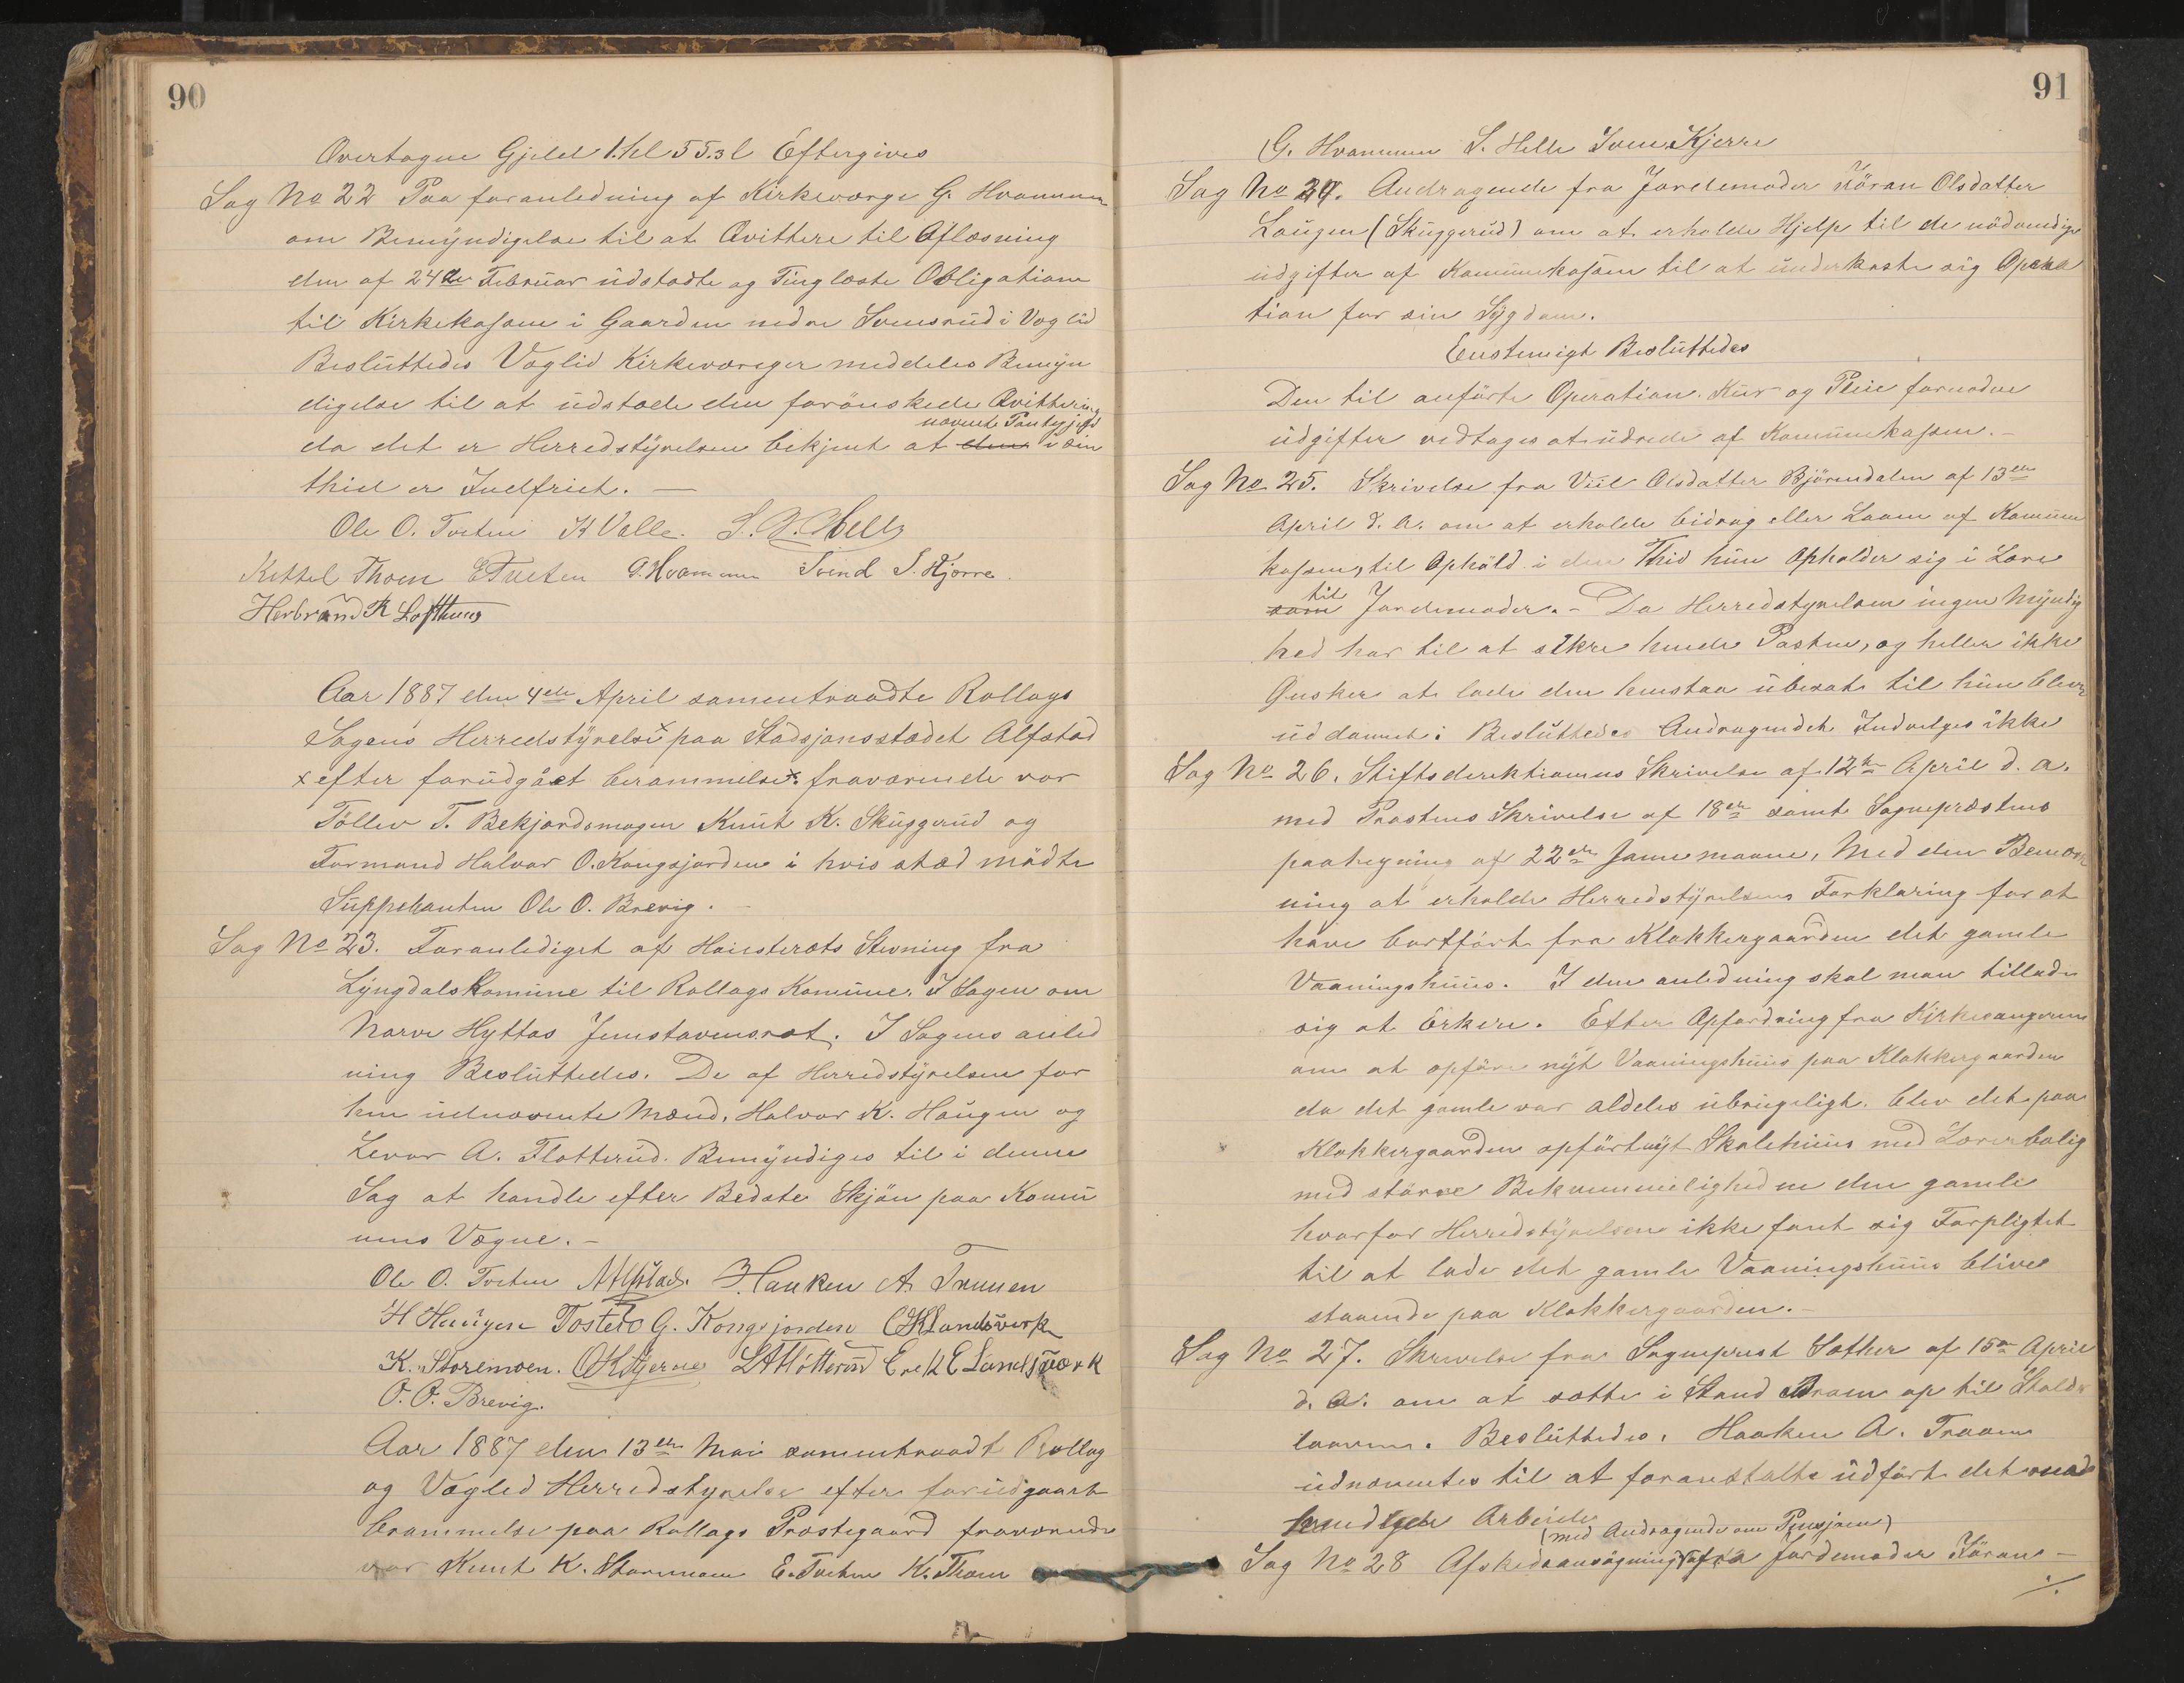 90
Overtagne Gjeld Eftergives
Sag No 22 Paa foranledning af Kirkeværge G. Hvammen
om Bemyndigelse til at Qvittere til Aflæsning
den af 24de Februar udstædte og Tinglæste Obligation
til Kirkekassen i Gaarden nedre Svensrud i Veglid
Besluttedes Veglid Kirkeværger meddeles Bemyn
digelse til at udstæde den forönskede Qvittering
nævnte Pantegjeld
da det er Herredstyrelsen bekjent at den i sin
thid er Indfriet. —
Ole O. Tveten K Valle. S. Helle
Kittel Thoen E Tveten G. Hvammen Svend S. Kjerre.
Herbrand K Lofthuus
Aar 1887 den 4de April samentraadte Rollags
Sogens Herredstyrelse x paa Skydsjonsstædet Alfstad
x efter forudgået berammelse x fraværende var
Töllev T. Bekjordsmogen Knut K. Skuggerud og
Formand Halvor O. Kongsjorden i hvis stæd mödte
Suppleanten Ole O. Brevig. —
Sag No 23. Foranlediget af Höiesterets Stevning fra
Lyngdals Komune til Rollags Komune. I Sagen om
Narve Hyttas Hjemstavnsret. I Sagens anled
ning Besluttedes. De af Herredstyrelsen for
hen udnævnte Mænd, Halvor K. Haugen og
Levor A. Flotterud. Bemyndiges til i denne
Sag at handle efter Bedste Skjön paa Komu
nens Vegne. —
Ole O. Tveten NAlfstad. Haaken A. Traaen
H Haugen Tosten G. Kongsjorden OKLandsverk
K. Storemoen. OKBjerne LAFlotterud Erek E Landsværk
O. O. Brevig.
Aar 1887 den 13de Mai samentraadt Rollag
og Veglid Herredstyrelse efter forudgaaet
brammelse paa Rollags Præstegaard fraværende
var Knut K. Storemoen E. Tveten K. Thoen
91
G. Hvammen S. Helle Sven Kjerre
Sag No 24. Andragende fra Jordemoder Jöran Olsdatter
Laugen (Skuggerud) om at erholde Hjelp til de nödvendige
udgifter af Komunekassen til at underkaste sig Opera
tion for sin Sygdom.
Enstemigt Besluttedes
Den til anförte Operation. Kur og Pleie fornødne
udgifter vedtages at udrede af Komunekassen. —
Sag No 25. Skrivelse fra Viil Olsdatter Björendalen af 13de
April d. A. om at erholde bidrag eller Laan af Komune
kassen, til Ophold i den Thid hun Opholder sig i Lære
til
som Jordemoder. — Da Herredstyrelsen ingen Myndig
hed har til at sikre hende Posten, og heller ikke
Önsker at lade den henstaa ubesat til hun bliver
uddannet: Besluttedes Andragendet Indvilges ikke
Sag No 26. Stiftsdirektionens Skrivelse af 12te April d. a.
med Provstens Skrivelse af 18de samt Sognepræstens
paategning af 22de samme maane, Med den Bemærk
ning at erholde Herredstyrelsens Forklaring for at
have bortfört fra Klokkergaarden det gamle
Vaaningshuus. I den anledning skal man tillade
sig at Erklere. Efter Opfordring fra Kirkesangeren
om at opföre nyt Vaaningshuus paa Klokkergaarden
da det gamle var aldeles ubrugeligt. blev det paa
Klokkergaarden opfört nyt Skolehuus med Lærerbolig
med större Bekvemmelighed en den gamle
hvorfor Herredstyrelsen ikke fant sig Forpligtet
til at lade det gamle Vaaningshuus blive
staaende paa Klokkergaarden. —
Sag No 27. Skrivelse fra Sogneprest Sother af 15de April
d. A. om at sætte i Stand Broen op til Stald
laaven. Besluttedes. Haaken A. Traaen
udnævntes til at foranstalte udfört det nöd
hvendige Arbeide
(med Andragende om Pensjon)
Sag No 28 Afskedsansögning fra Jordemoder Jöran —
./.